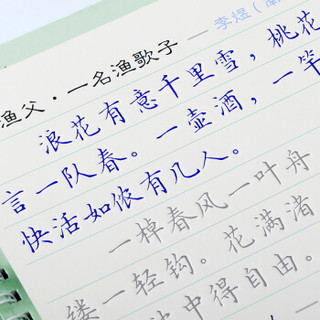 渔父·一名渔歌子 — 李煜(南
浪花有意千里雪,桃花
言一队春。一壶酒,一竿
快活如侬有几人。
一棹春风一叶舟
缕一轻钩。花满渚
中得自由。